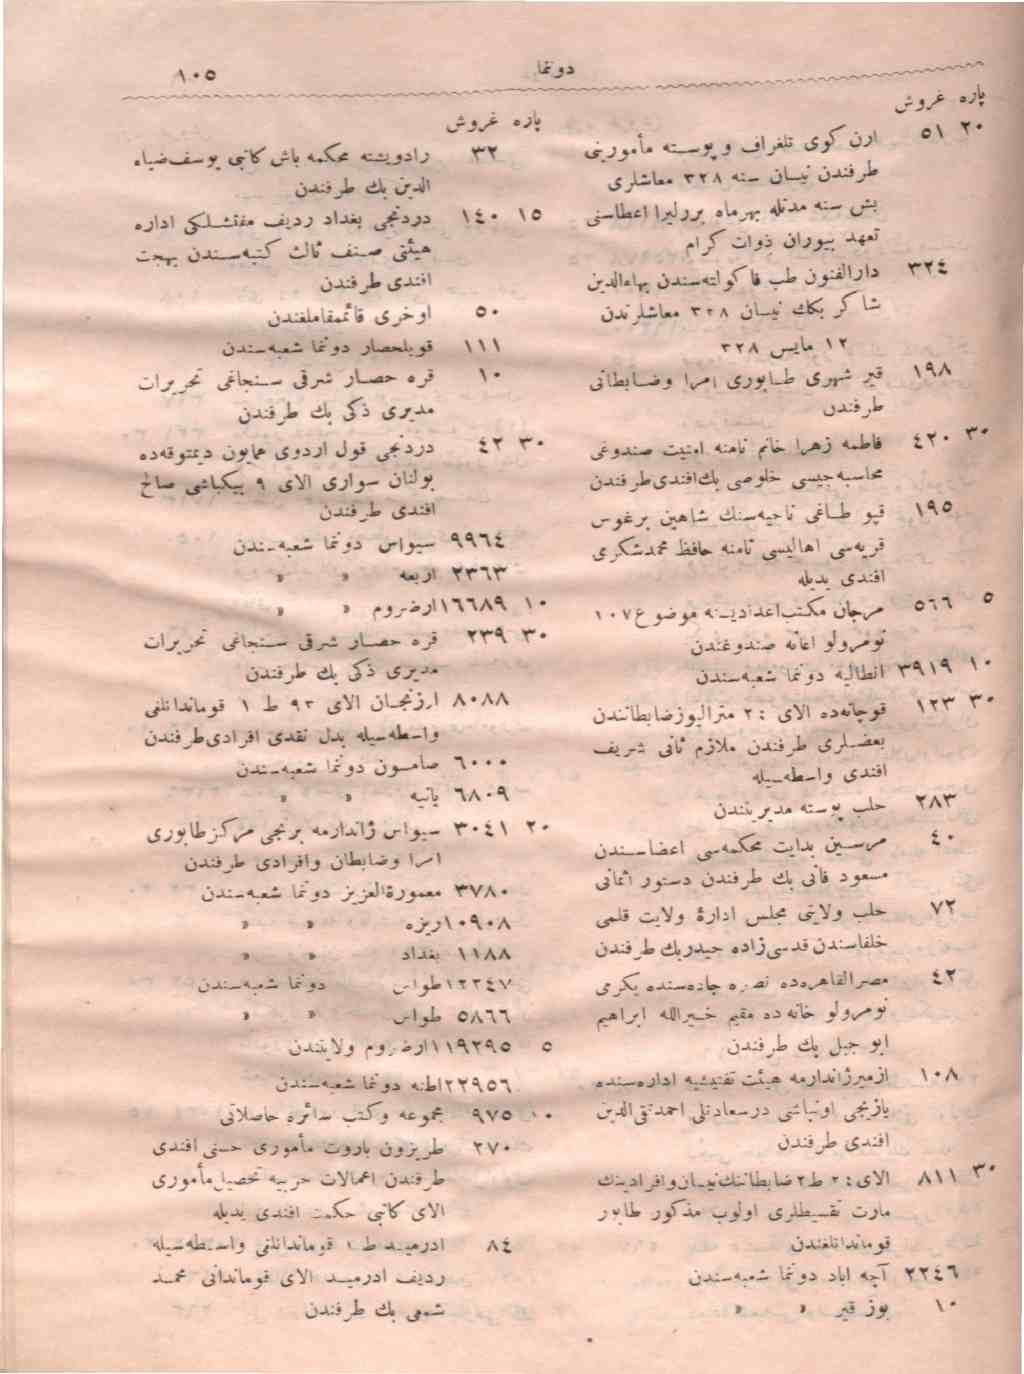 دوننما
١٠٥
پاره غروش
٢٠ ٥١ ارن كوی تلغراف و پوسته مأمورینی
طرفندن نیسان سنه ٣٢٨ معاشلری
بش سنه مدتله بهرماه بررلیرا اعطاسنی
تعهد بیوران ذوات كرام
٣٢٤ دارالفنون طب فاكولته‌سندن بهاءالدین
شاكر بكك نیسان ٣٢٨ معاشلرندن
١٢ مایس ٣٢٨
١٩٨ قیر شهری طابوری امرا وضابطانی
طرفندن
٣٠ ٤٢٠ فاطمه زهرا خانم نامنه امنیت صندوغی
محاسبه‌جیسی خلوصی بك افندی طرفندن
١٩٥ قپو طاغی ناحیه‌سنك شاهین برغوس
قریه‌سی اهالیسی نامنه حافظ محمدشكری
افندی یدیله
٥ ٥٦٦ مرجان مكتب اعدادیسنه موضوع ١٠٧
نومرولو اعانه صندوغندن
١٠ ٣٩١٩ انطالیه دوننما شعبه‌سندن
٣٠ ١٢٣ قوچانه‌ده الای : ٢ مترالیوزضابطانندن
بعضلری طرفندن ملازم ثانی شریف
افندی واسطه‌سیله
٢٨٣ حلب پوسته مدیریتندن
٤٠ مرسین بدایت محكمه‌سی اعضاسندن
مسعود فانی بك طرفندن دستور اثمانی
٧٢ حلب ولایتی مجلس ادارهٔ ولایت قلمی
خلفاسندن قدسی‌زاده حیدربك طرفندن
٤٢ مصرالقاهره‌ده نصره جاده‌سنده یكرمی
نومرولو خانه‌ده مقیم خیرالله ابراهیم
ابو جبل بك طرفندن
١٠٨ ازمیرژاندارمه هیئت تفتیشیه اداره‌سنده
یازیجی اونباشی درسعادتلی احمدتقی‌الدین
افندی طرفندن
٣٠ ٨١١ الای : ٢ ط ٢ ضابطاننك نیسان وافرادینك
مارت تقسیطلری اولوب مذكور طابور
قوماندانلغندن
٢٢٤٦ آچه اباد دوننما شعبه‌سندن
١٠ بوز قیر » »
پاره غروش
٣٢ رادویشته محكمه باش كاتبی یوسف ضیاء
الدین بك طرفندن
١٥ ١٤٠ دردنجی بغداد ردیف مفتشلكی اداره
هیئتی صنف ثالث كتبه‌سندن بهجت
افندی طرفندن
٥٠ اوخری قائممقاملغندن
١١١ قویلحصار دوننما شعبه‌سندن
١٠ قره حصار شرقی سنجاغی تحریرات
مدیری ذكی بك طرفندن
٣٠ ٤٢ دردنجی قول اردوی همایون دیمتوقه‌ده
بولنان سواری الای ٩ بیكباشی صالح
افندی طرفندن
٩٩٦٤ سیواس دوننما شعبه‌سندن
٢٣٦٣ اربعه » »
١٠ ١٦٦٨٩ ارضروم » »
٣٠ ٢٣٩ قره حصار شرقی سنجاغی تحریرات
مدیری ذكی بك طرفندن
٨٠٨٨ ارزنجان الای ٩٣ ط ١ قوماندانلغی
واسطه‌سیله بدل نقدی افرادی طرفندن
٦٠٠٠ صامسون دوننما شعبه‌سندن
٦٨٠٩ یانیه » »
٢٠ ٣٠٤١ سیواس ژاندارمه برنجی مركز طابوری
امرا وضابطان وافرادی طرفندن
٣٧٨٠ معمورةالعزیز دوننما شعبه‌سندن
١٠٩٠٨ ریزه » »
١١٨٨ بغداد » »
١٢٢٤٧ طواس دوننما شعبه‌سندن
٥٨٦٦ طواس » »
٥ ١١٩٢٩٥ ارضروم ولایتندن
٢٢٩٥٦ اطنه دوننما شعبه‌سندن
١٠ ٩٧٥ مجموعه وكتب سائره حاصلاتی
٢٧٠ طربزون باروت مأموری حسنی افندی
طرفندن اعمالات حربیه تحصیل مأموری
الای كاتبی حكمت افندی یدیله
٨٤ ادرمید ط ١ قوماندانلغی واسطه‌سیله
ردیف ادرمید الای قوماندانی محمد
شمعی بك طرفندن